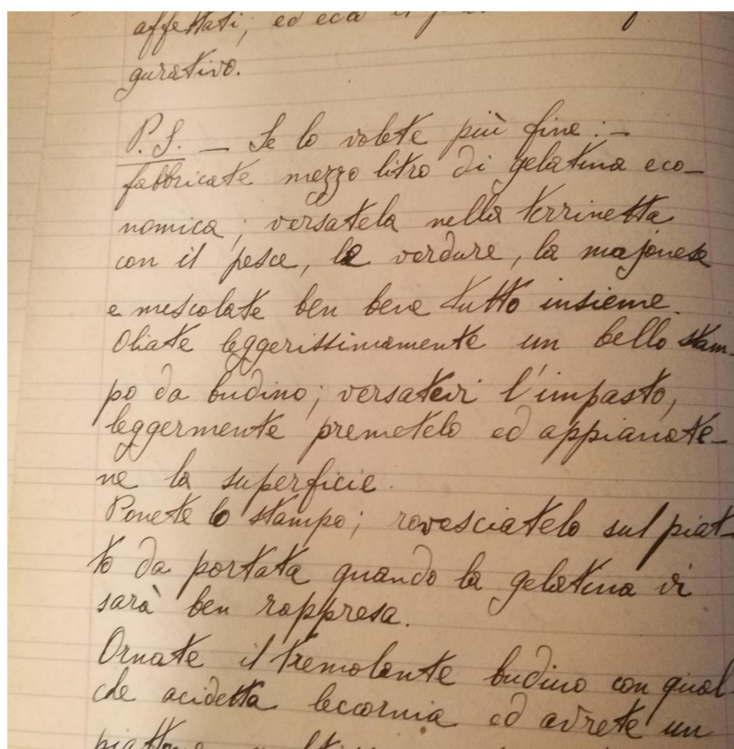 affettati, ed ecco il
gurativo.
P.S. — Se lo volete più fine: —
fabbricate mezzo litro di gelatina eco-
nomica; versatela nella terrinetta
con il pesce, le verdure, la majonese
e mescolate ben bene tutto insieme.
Oliate leggerissimamente un bello stam-
po da budino; versatevi l'impasto,
leggermente premetelo ed appianate-
ne la superficie.
Ponete lo stampo; rovesciatelo sul piat-
to da portata quando la gelatina vi
sarà ben rappresa.
Ornate il tremolante budino con qual-
che acidetta leccornia ed avrete un